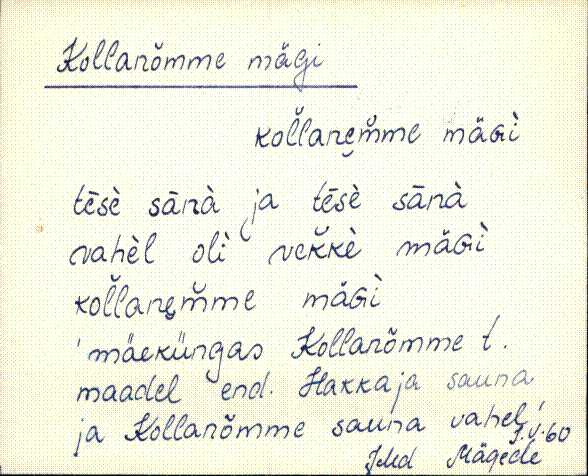 Kollarõmme mägi
kol̆larem̆me mäGì
tēsè sānà ja tēsè sānà
vahèl olì vek̆kè mäGì
kol̆larem̆me mäGì
'mäeküngas Kollarõmme t.
maadel end. Hakkaja sauna
ja Kollarõmme sauna vahel'
Mägede